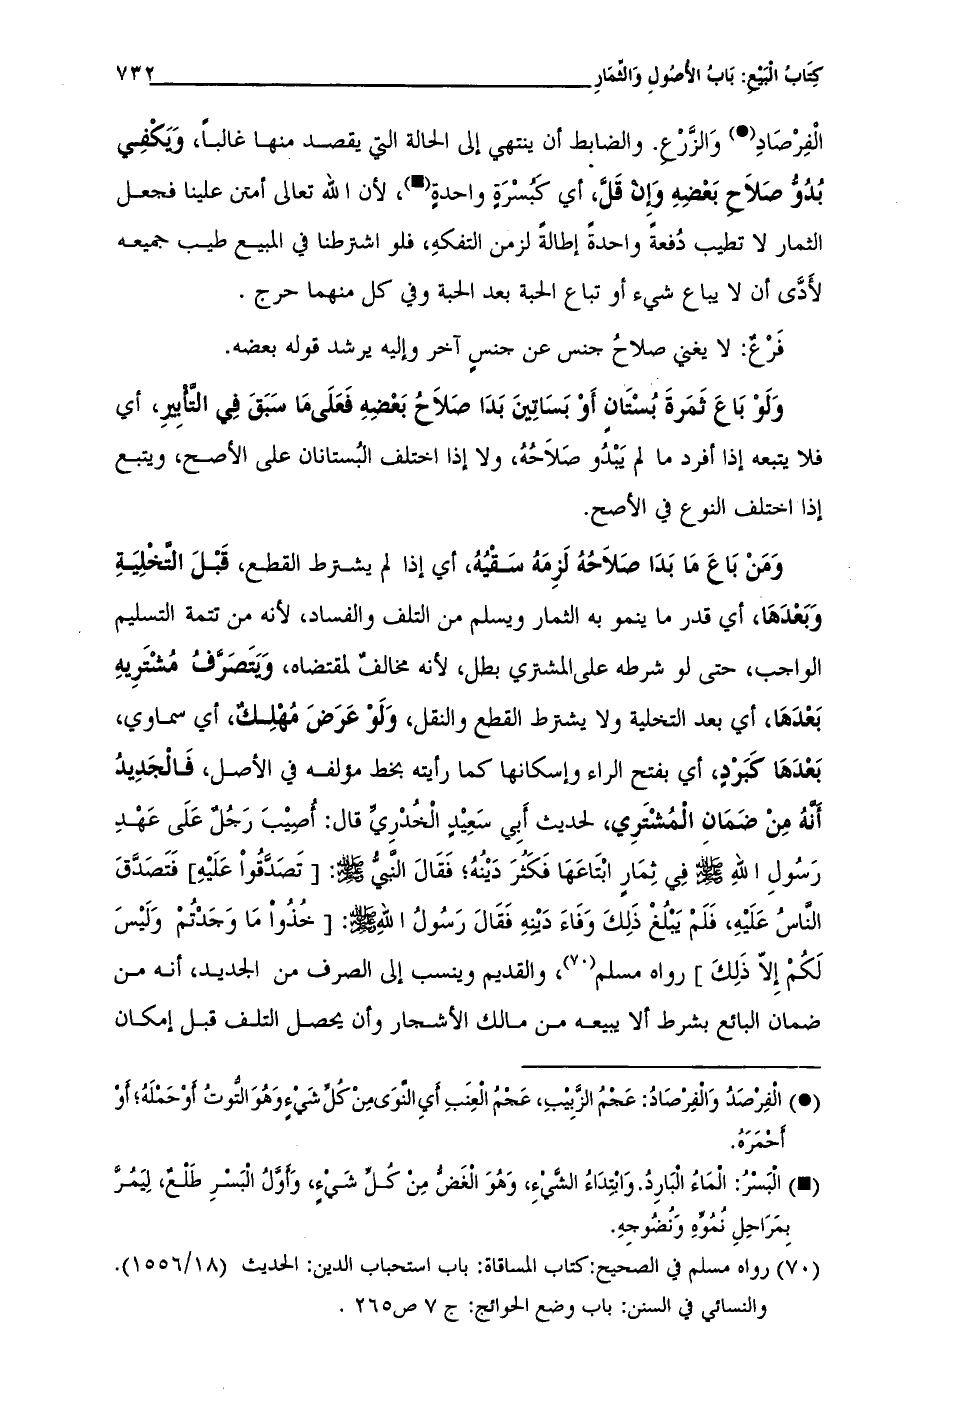 كِتَابُ الْبَيْعِ: بَابُ الأُصُولِ وَالثِّمَارِ ٧٣٢
الْفِرْصَادِ(●) وَالزَّرْعِ. والضابط أن ينتهي إلى الحالة التي يقصد منها غالباً، وَيَكْفِي
بُدُوُّ صَلَاحِ بَعْضِهِ وَإِنْ قَلَّ، أي كَبُسْرَةٍ واحدةٍ(■)، لأن الله تعالى أمتن علينا فجعل
الثمار لا تطيب دُفعةً واحدةً إطالةً لزمن التفكهِ، فلو اشترطنا في المبيع طيب جميعه
لأَدَّى أن لا يباع شيء أو تباع الحبة بعد الحبة وفي كل منهما حرج .
فَرْعٌ: لا يغني صلاحُ جنس عن جنسٍ آخر وإليه يرشد قوله بعضه.
وَلَوْ بَاعَ ثَمَرَةَ بُسْتَانٍ أَوْ بَسَاتِينَ بَدَا صَلَاحُ بَعْضِهِ فَعَلَى مَا سَبَقَ فِي التَّأْبِيرِ، أي
فلا يتبعه إذا أفرد ما لم يَبْدُو صَلَاحُهُ، ولا إذا اختلف البُستانان على الأصح، ويتبع
إذا اختلف النوع في الأصح.
وَمَنْ بَاعَ مَا بَدَا صَلَاحُهُ لَزِمَهُ سَقْيُهُ، أي إذا لم يشترط القطع، قَبْلَ التَّخْلِيَةِ
وَبَعْدَهَا، أي قدر ما ينمو به الثمار ويسلم من التلف والفساد، لأنه من تتمة التسليم
الواجب، حتى لو شرطه على المشتري بطل، لأنه مخالفٌ لمقتضاه، وَيَتَصَرَّفُ مُشْتَرِيهِ
بَعْدَهَا، أي بعد التخلية ولا يشترط القطع والنقل، وَلَوْ عَرَضَ مُهْلِكٌ، أي سماوي،
بَعْدَهَا كَبَرْدٍ، أي بفتح الراء وإسكانها كما رأيته بخط مؤلفه في الأصل، فَالْجَدِيدُ
أَنَّهُ مِنْ ضَمَانِ الْمُشْتَرِي، لحديث أَبِي سَعِيْدٍ الْخُدْرِيِّ قال: أُصِيْبَ رَجُلٌ عَلَى عَهْدِ
رَسُولِ اللهِ ﷺ فِي ثِمَارٍ ابْتَاعَهَا فَكَثُرَ دَيْنُهُ؛ فَقَالَ النَّبِيُّ ﷺ: [ تَصَدَّقُواْ عَلَيْهِ] فَتَصَدَّقَ
النَّاسُ عَلَيْهِ، فَلَمْ يَبْلُغْ ذَلِكَ وَفَاءَ دَيْنِهِ فَقَالَ رَسُولُ اللهِ ﷺ: [ خُذُواْ مَا وَجَدْتُمْ وَلَيْسَ
لَكُمْ إِلاَّ ذَلِكَ ] رواه مسلم(٧٠)، والقديم وينسب إلى الصرف من الجديد، أنه من
ضمان البائع بشرط ألا يبيعه من مالك الأشجار وأن يحصل التلف قبل إمكان
(●) الْفِرْصَدُ وَالْفِرْصَادُ: عَجْمُ الزَّبِيْبِ، عَجْمُ الْعِنَبِ أَيِ النَّوَى مِنْ كُلِّ شَيْءٍ وَهُوَ التُّوتُ أَوْ حَمْلَهُ؛ أَوْ
أَحْمَرَهُ.
(■) الْبَسْرُ: الْمَاءُ الْبَارِدُ. وَابْتِدَاءُ الشَّيْءِ، وَهُوَ الْغَضُّ مِنْ كُلِّ شَيْءٍ، وَأَوَّلُ الْبَسْرِ طَلْعٌ، لِيَمُرَّ
بِمَرَاحِلِ نُمُوِّهِ وَنُضُوجِهِ.
(٧٠) رواه مسلم في الصحيح: كتاب المساقاة: باب استحباب الدين: الحديث (١٥٥٦/١٨).
والنسائي في السنن: باب وضع الحوائج: ج ٧ ص٢٦٥ .